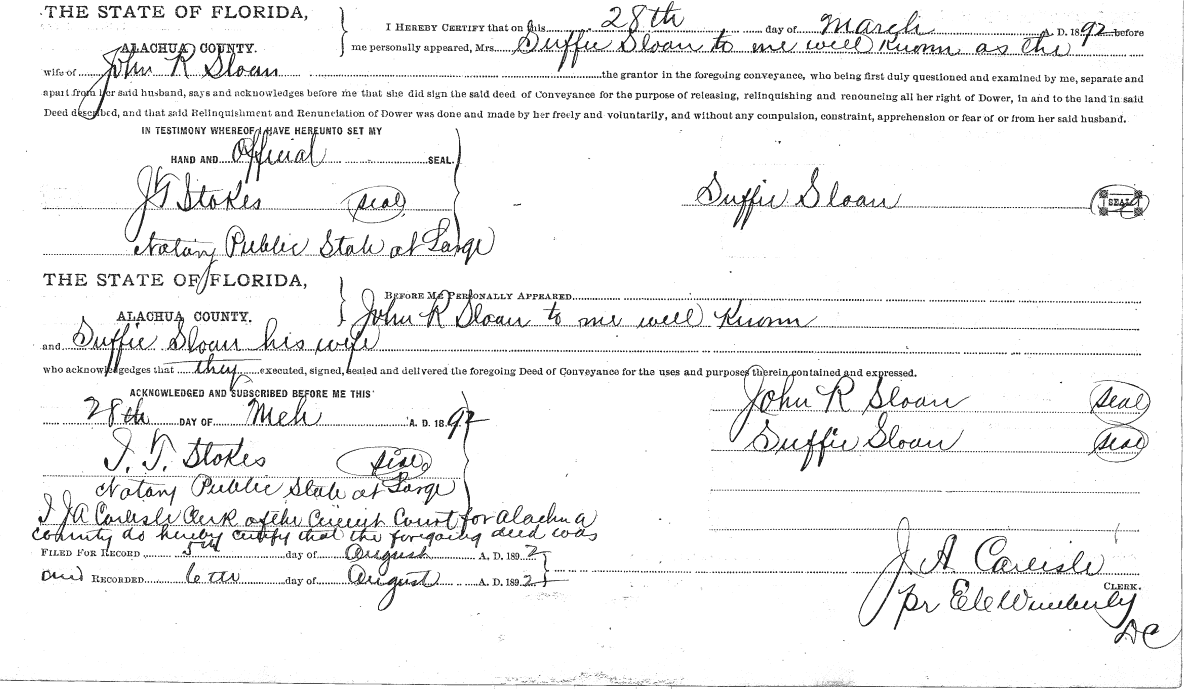 THE STATE OF FLORIDA,
ALACHUA COUNTY.
I HEREBY CERTIFY that on this 28th day of March A. D. 1892 before
me personally appeared, Mrs. Suffie Sloan to me well known as the
wife of John R Sloan the grantor in the foregoing conveyance, who being first duly questioned and examined by me, separate and
apart from her said husband, says and acknowledges before me that she did sign the said deed of Conveyance for the purpose of releasing, relinquishing and renouncing all her right of Dower, in and to the land in said
Deed described, and that said Relinquishment and Renunciation of Dower was done and made by her freely and voluntarily, and without any compulsion, constraint, apprehension or fear of or from her said husband.
IN TESTIMONY WHEREOF I HAVE HEREUNTO SET MY
HAND AND Official SEAL.
J T Stokes seal
Suffie Sloan SEAL
Notary Public State at Large
THE STATE OF FLORIDA,
ALACHUA COUNTY.
BEFORE ME PERSONALLY APPEARED
John R Sloan to me well Known
and Suffie Sloan his wife
who acknowledges that they executed, signed, sealed and delivered the foregoing Deed of Conveyance for the uses and purposes therein contained and expressed.
ACKNOWLEDGED AND SUBSCRIBED BEFORE ME THIS
28th DAY OF Mch A. D. 1892
John R Sloan seal
Suffie Sloan seal
J. T. Stokes seal
Notary Public State at Large
I JA Carlisle Clerk of the Circuit Court for Alachua
County do hereby certify that the foregoing deed was
FILED FOR RECORD 5th day of August A. D. 1892
and RECORDED 6th day of August A. D. 1892
J A Carlisle
CLERK.
pr E C Wimberly
DC